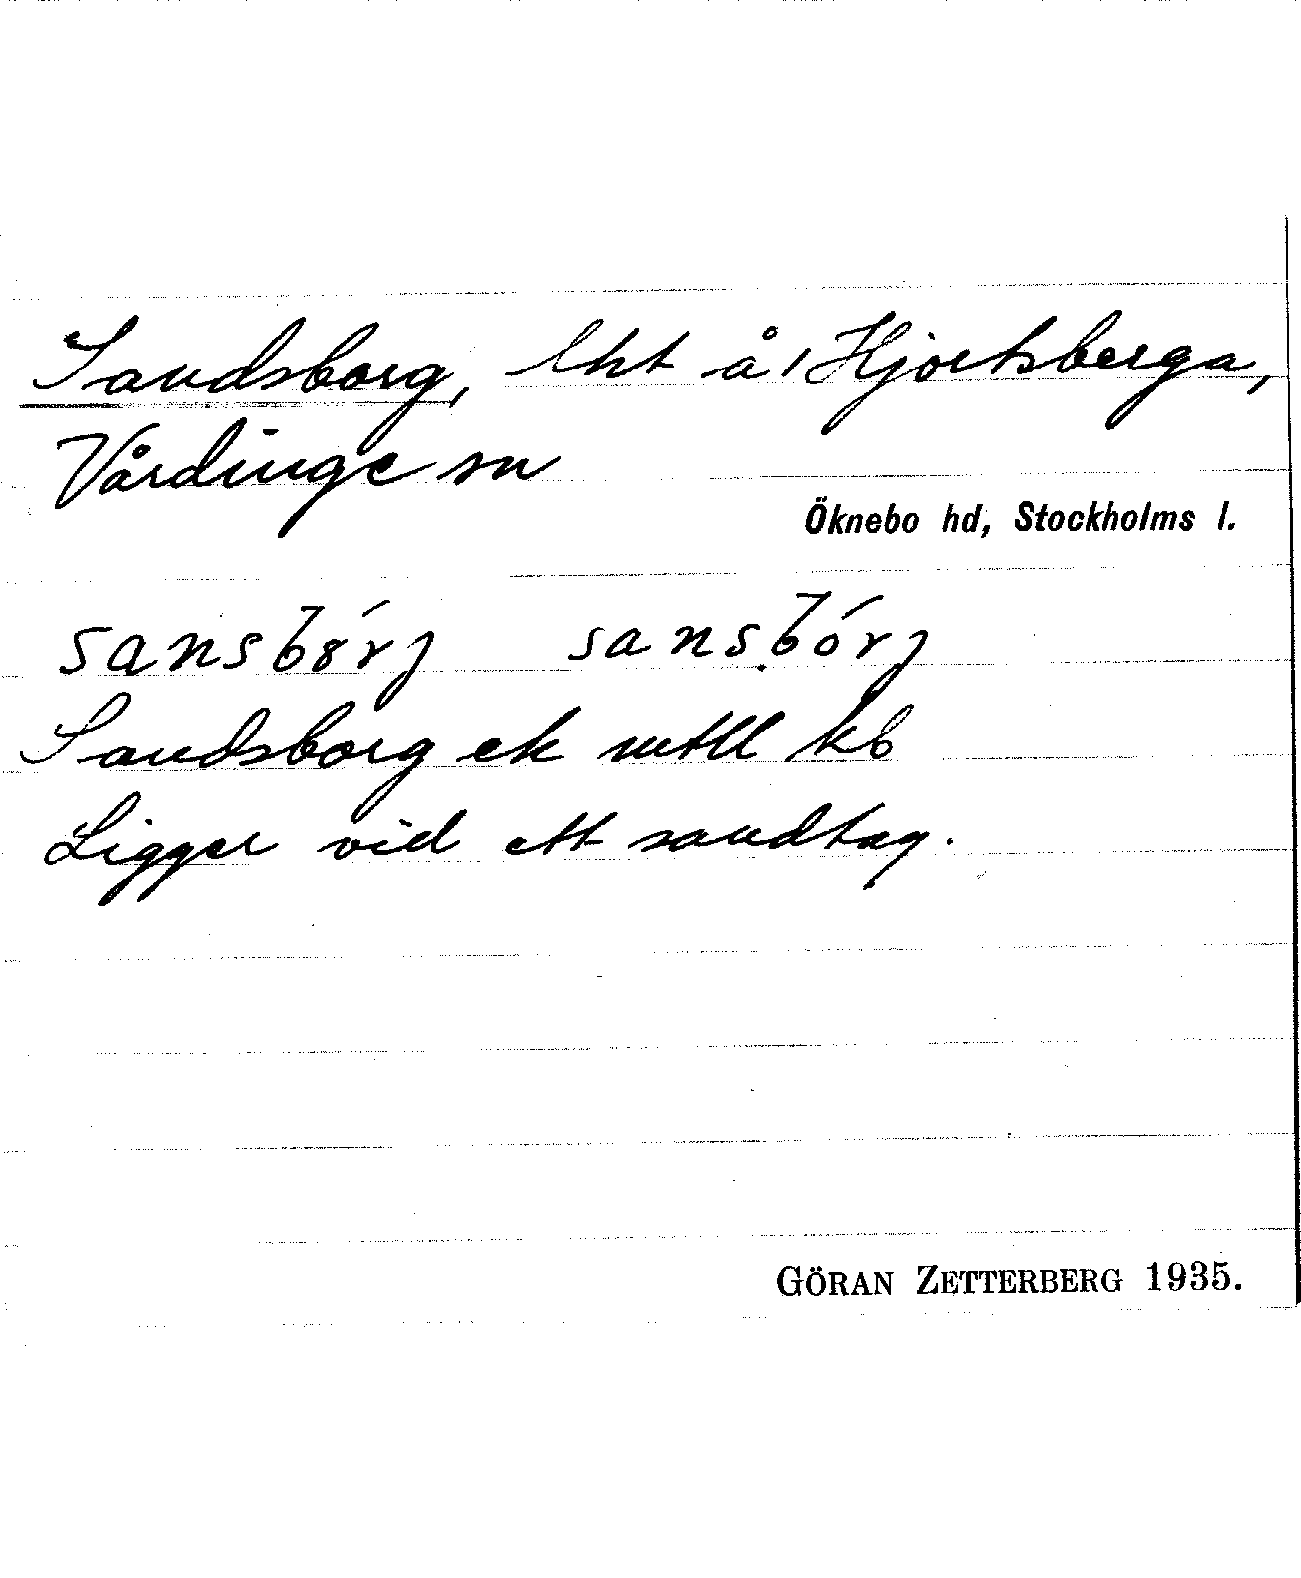 Sandsborg, lht å Hjortsberga,
Vårdinge sn
Öknebo hd, Stockholms l.
sansbo̊rj sansbórj
Sandsborg ek mtll kb
Ligger vid ett sandtag.
GÖRAN ZETTERBERG 1935.